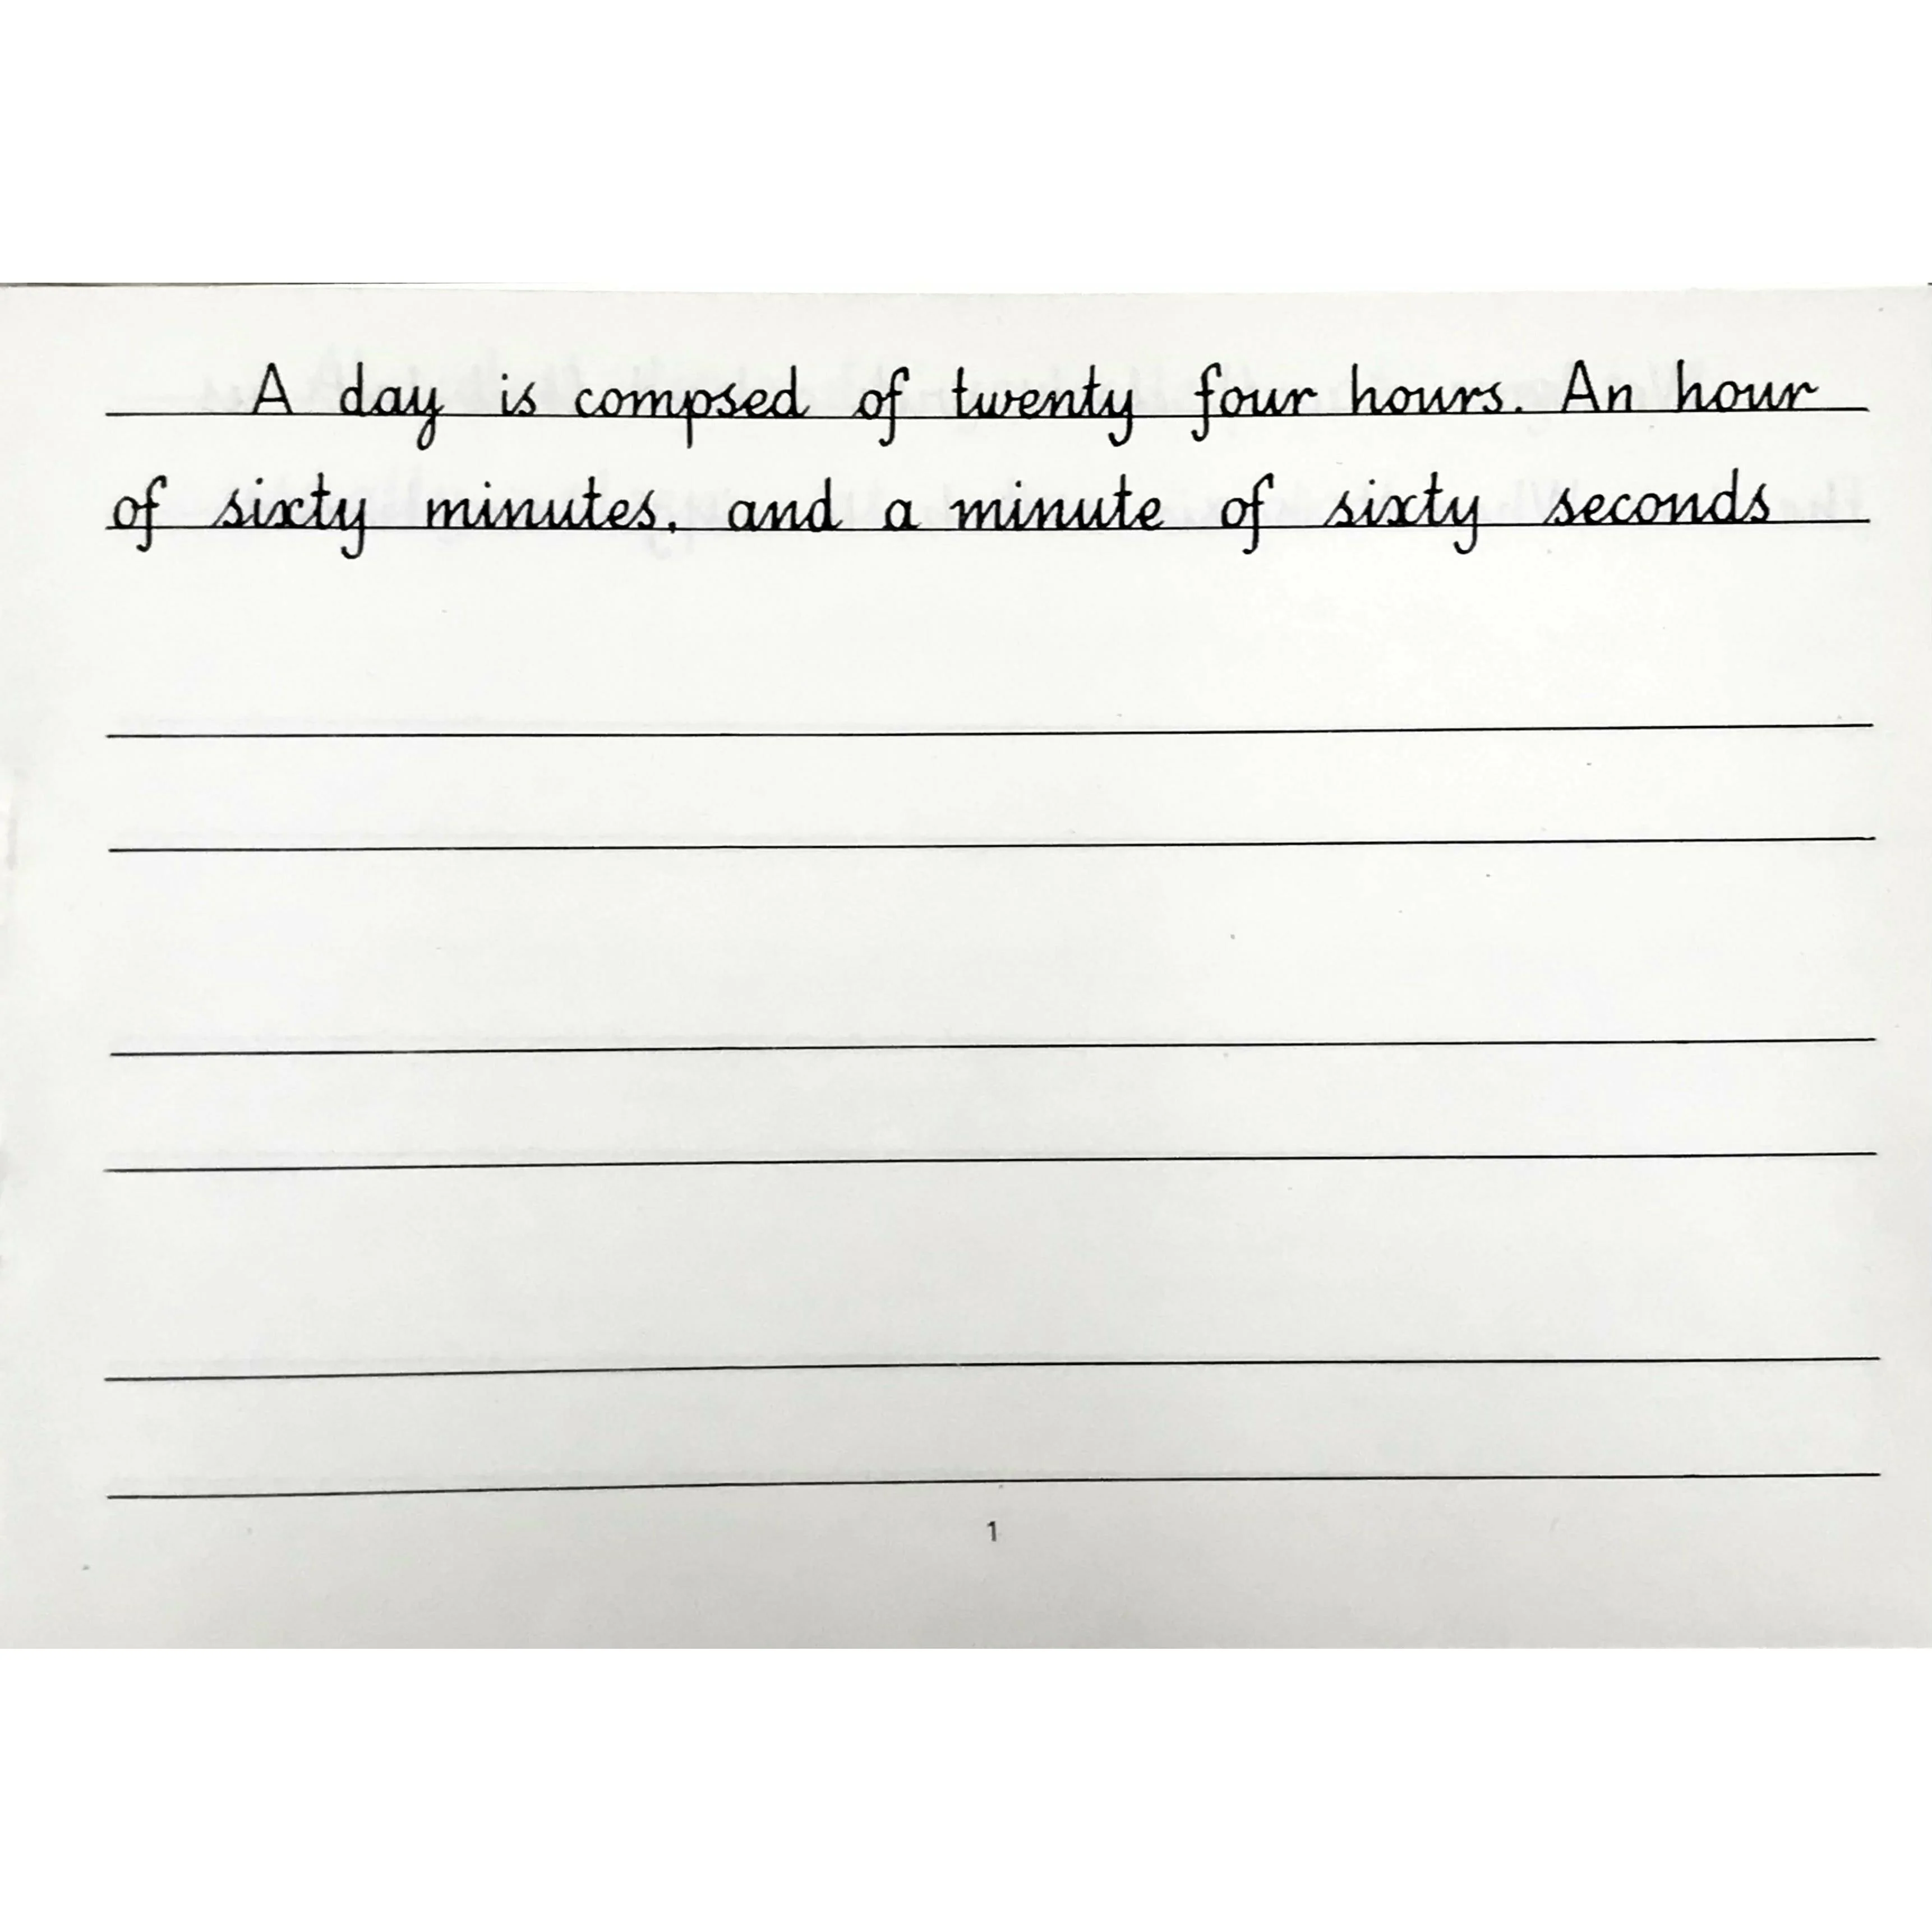 A day is compsed of twenty four hours. An hour
of sixty minutes, and a minute of sixty seconds
1